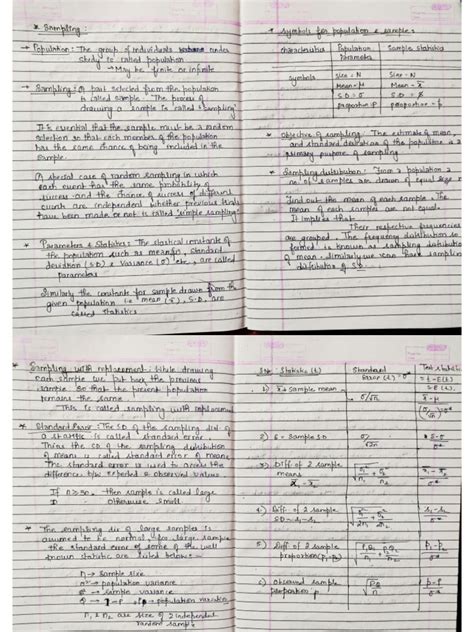 * Sampling :
→ Population : The group of individuals under
study is called population
→ May be finite or infinite
→ Sampling : A part selected from the population
is called sample. The process of
drawing a sample is called 'sampling'
It is essential that the sample must be a random
selection so that each member of the population
has the same chance of being included in the
sample.
A special case of random sampling in which
each event has the same probability of
success and the chance of success of different
events are independent whether previous trials
have been made or not is called 'simple sampling'
* Parameters & Statistics : The stastical constants of
the population such as mean(μ), standard
deviation (S.D) & variance (σ²) etc, are called
parameters
Similarly the constants for sample drawn from the
given population i.e mean (x̄), S.D, are
called statistics
* Symbols for population & samples
characteristics Population Parameters Sample statistics
symbols Size = N Size = n
Mean = μ Mean = x̄
S.D = σ S.D =
proportion = p proportion = p
* Objective of sampling : The estimate of mean,
and standard deviation of the population is a
primary purpose of sampling
* Sampling distribution : From a population a
no of samples are drawn of equal size
Find out the mean of each sample. The
mean of each samples are not equal.
It implies that
Their respective frequencies
are grouped. The frequency distribution so
formed is known as sampling distribution
of mean, similarly we can have sampling
distribution of S.D.
* Sampling with replacement : While drawing
each sample we put back the previous
sample so that the parent population
remains the same
This is called sampling with replacement
* Standard Error : The SD of the sampling dist. of
a statistic is called standard error.
Thus the SD of the sampling distribution
of mean is called standard error of mean
The standard error is used to access the
difference b/w expected & observed values
If n ≥ 30, then sample is called large
otherwise small
* The sampling dis of large samples is
assumed to be normal for large sample
the standard error of some of the well
known statistic are listed below :-
n → sample size
σ² → population variance
→ sample variance
→ 1-p → population
n₁ n₂ are size of 2 independent
random sample
S.No Statistic (t) Standard Error Test statistic
= t-E(t)
S.E(t)
1) x̄ = sample mean σ/√n x̄ - μ
(σ/√n)
2) S = Sample SD
3) Diff of 2 sample
means
x̄₁ - x̄₂
4) Diff of 2 sample
SD - s₁-s₂
5) Diff of 2 sample
proportion(p₁-p₂)
6) Observed sample
proportion p